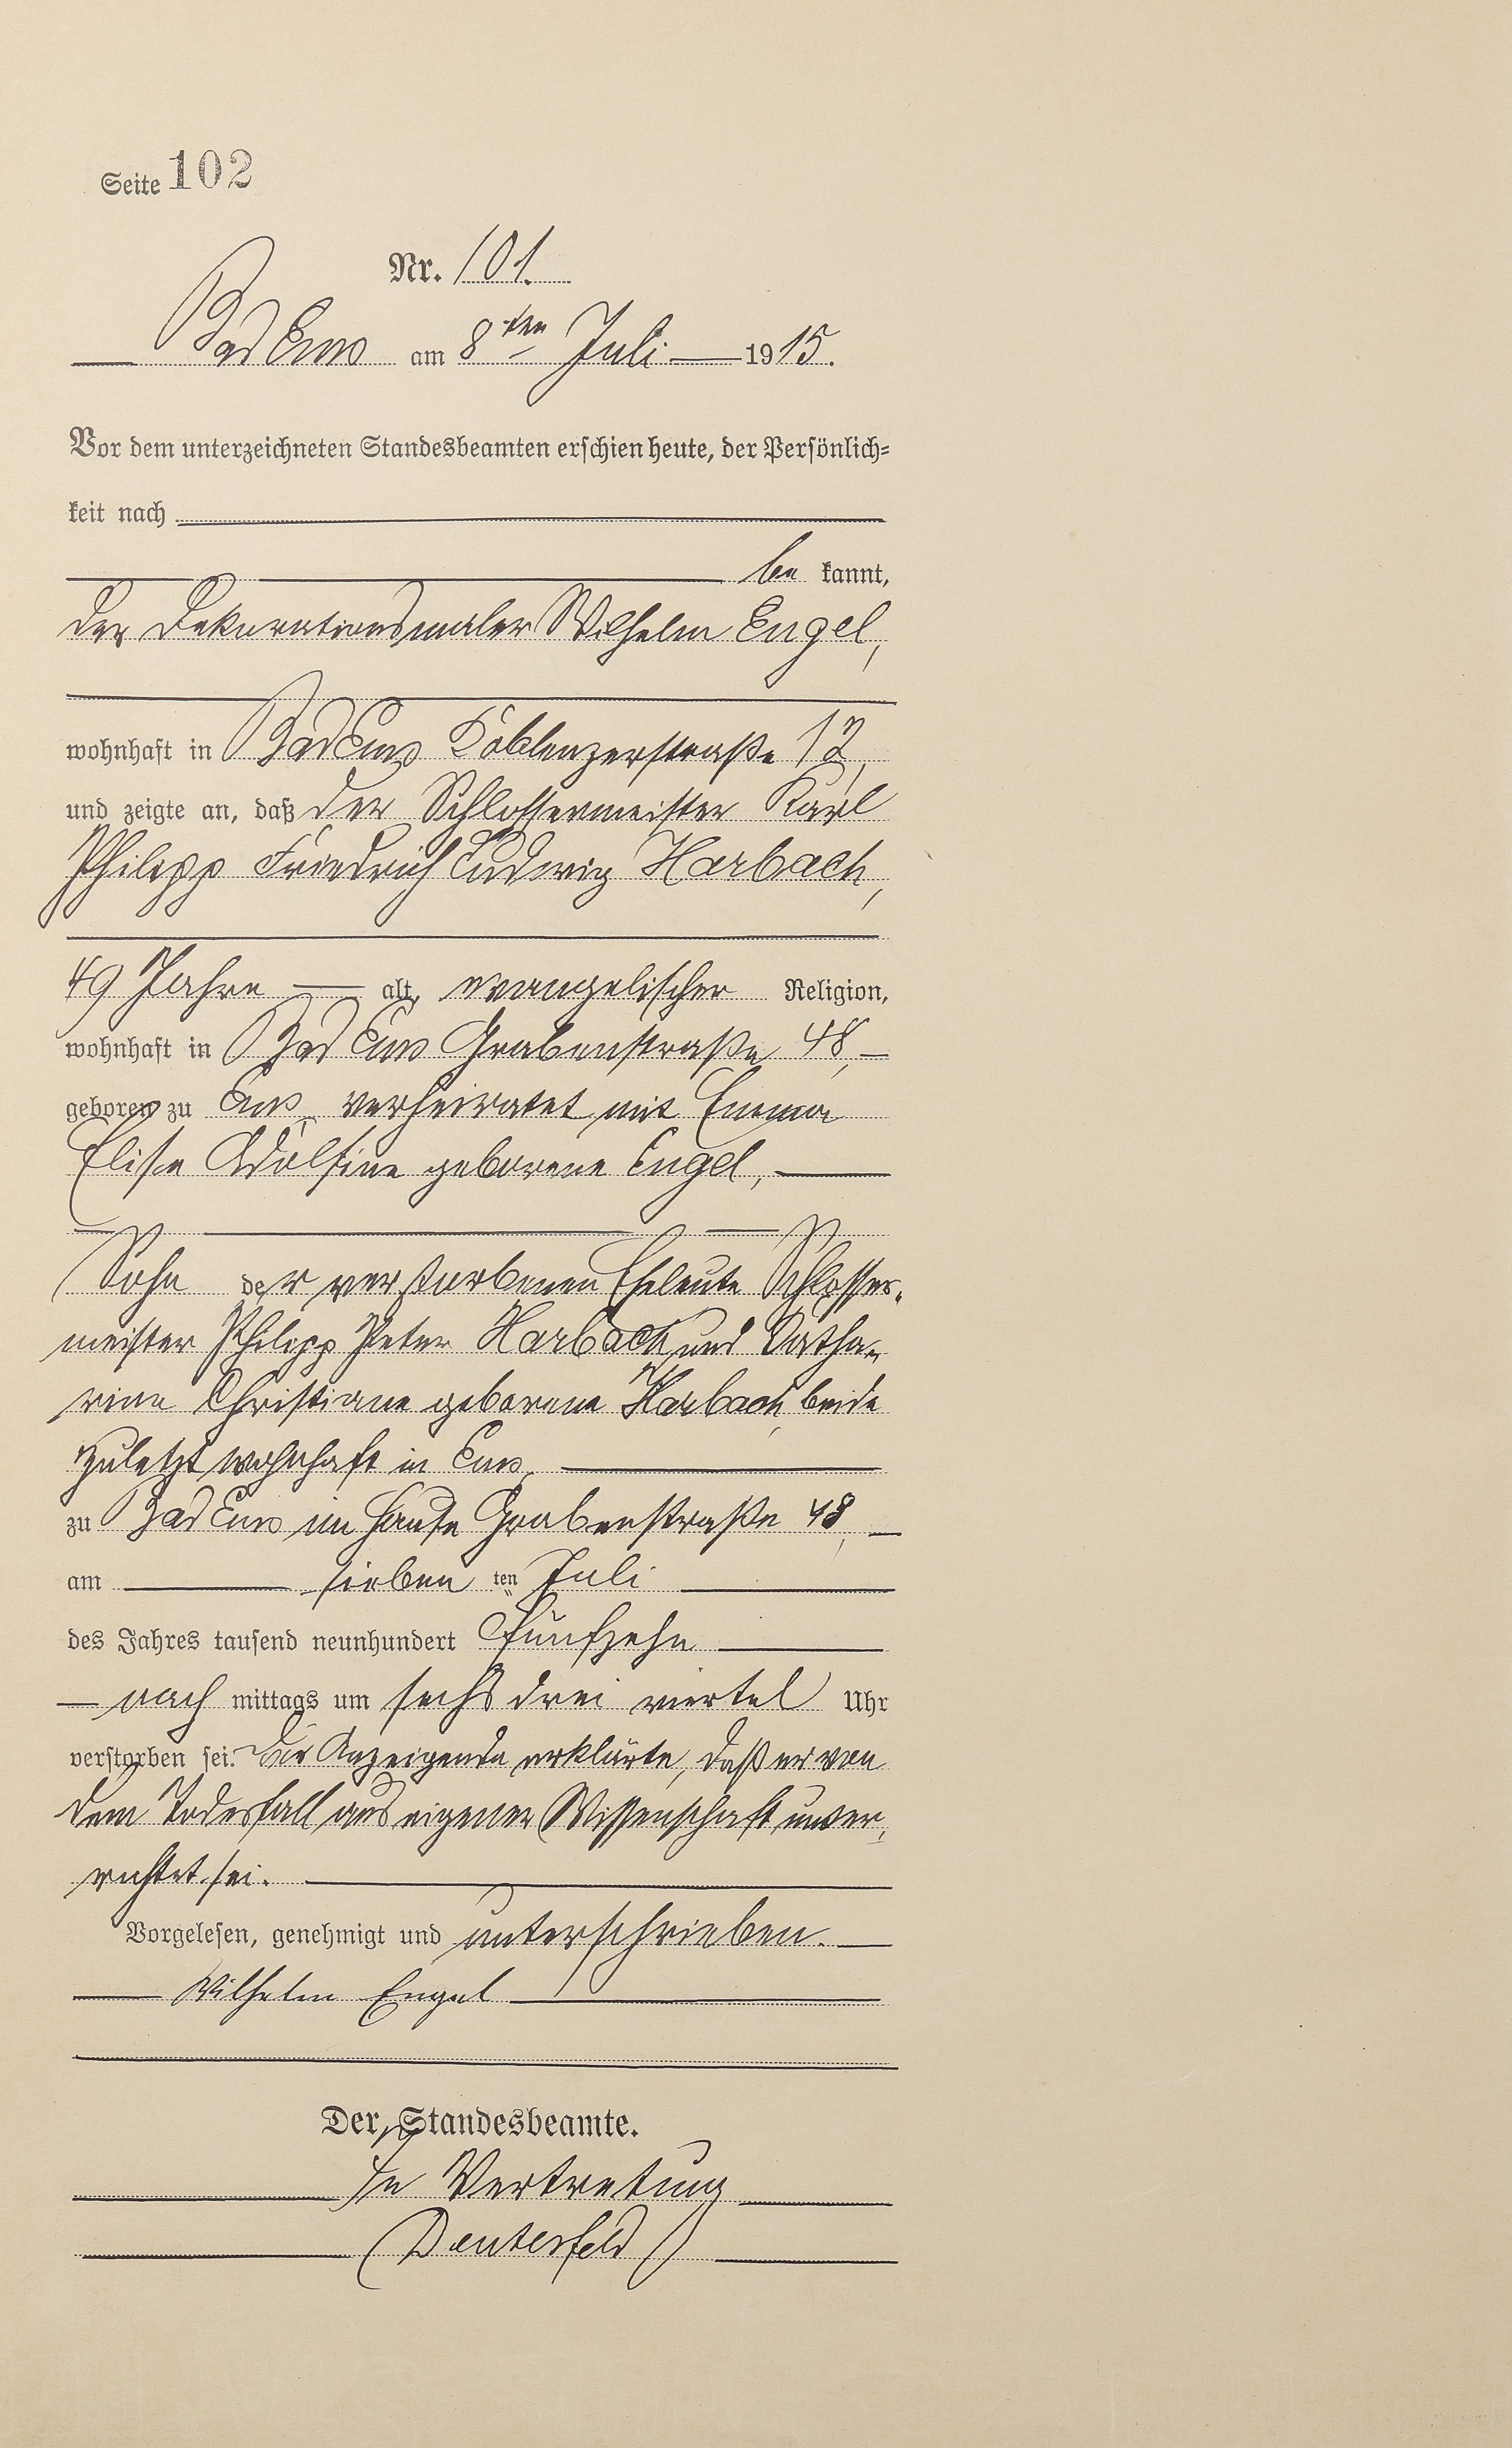 Seite 102
Nr. 101.
Bad Ems am 8ten Juli 1915.
Vor dem unterzeichneten Standesbeamten erschien heute, der Persönlich=
keit nach
be kannt,
der Dekorationsmaler Wilhelm Engel,
wohnhaft in Bad Ems Coblenzerstraße 12,
und zeigte an, daß der Schlossermeister Karl
Philipp Friedrich Ludwig Harbach,
49 Jahre alt, evangelischer Religion,
wohnhaft in Bad Ems Grabenstraße 48,
geboren zu Ems, verheiratet mit Emma
Elise Adolfine geborene Engel,
Sohn der verstorbenen Eheleute Schlosser-
meister Philipp Peter Harbach und Catha-
rine Christiane geborene Harbach, beide
zuletzt wohnhaft in Ems,
zu Bad Ems im Hause Grabenstraße 48,
am sieben ten Juli
des Jahres tausend neunhundert fünfzehn
nach mittags um sechs drei viertel Uhr
verstorben sei. Der Anzeigende erklärte, daß er von
dem Todesfall aus eigener Wissenschaft unter-
richtet sei.
Vorgelesen, genehmigt und unterschrieben.
Wilhelm Engel
Der Standesbeamte.
In Vertretung